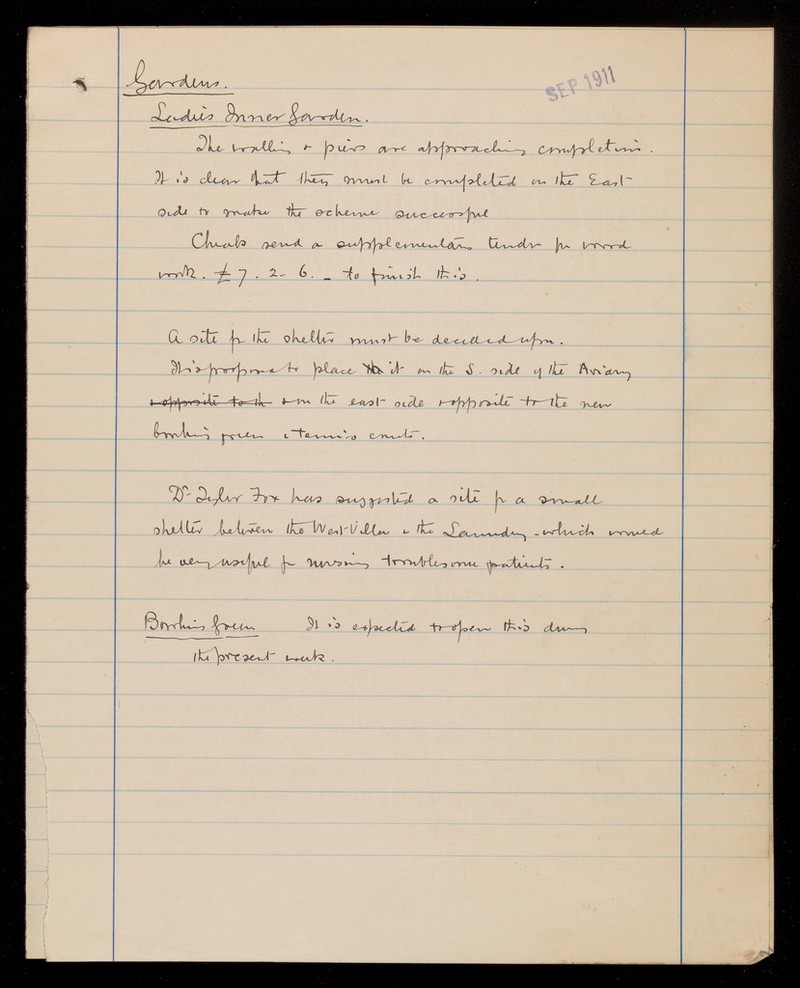 Gardens.
SEP 1911
Ladies Inner Garden.
The walling & piers are approaching completion.
It is clear that they must be completed on the East
side to make the scheme successful
Cheals send a supplementary tender for wood
work. £7.2-6. - to finish this.
A site for the shelter must be decided upon.
It is proposed to place it on the S. side of the Aviary
& opposite to th & on the east side & opposite to the new
bowling green & tennis courts.
Dr Tylor Fox has suggested a site for a small
shelter between the West Villa & the Laundry - which would
be very useful for nursing troublesome patients.
Bowling Green It is expected to open this during
the present week.